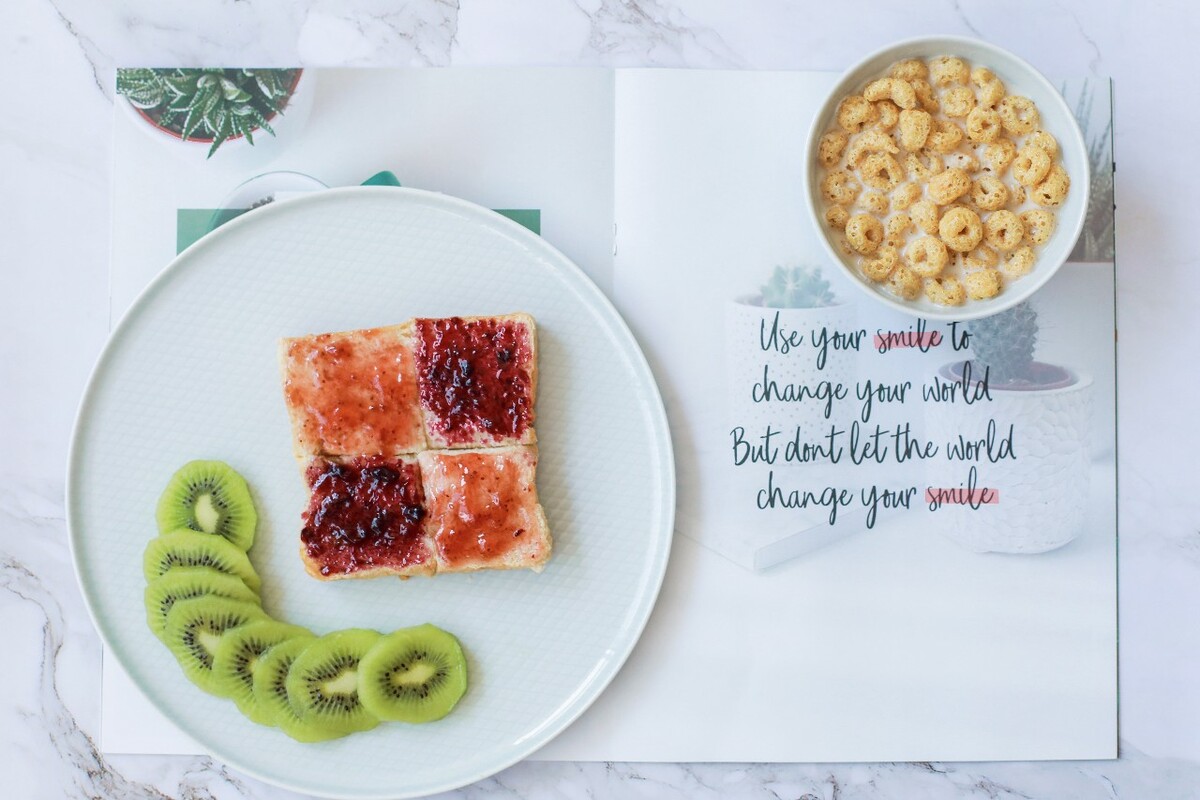 Use your smile to
change your world
But dont let the world
change your smile